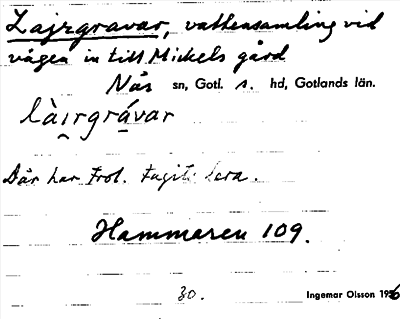 Lajrgravar, vattensamling vid
vägen in till Mickels gård
Näs sn, Gotl. s. hd, Gotlands län.
làirgrávar
Där har trol. tagits lera.
Hammaren 109.
30. Ingemar Olsson 1936